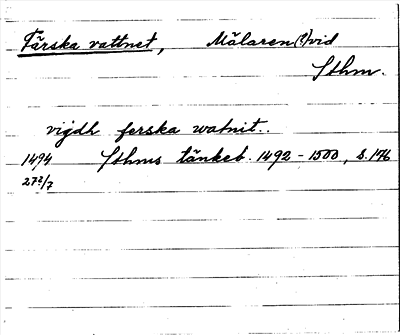 Färska vattnet, Mälaren(?) vid
Sthm.
vijdh ferska watnit..
1494 Sthms tänkeb. 1492-1500, s. 176
27 2/7